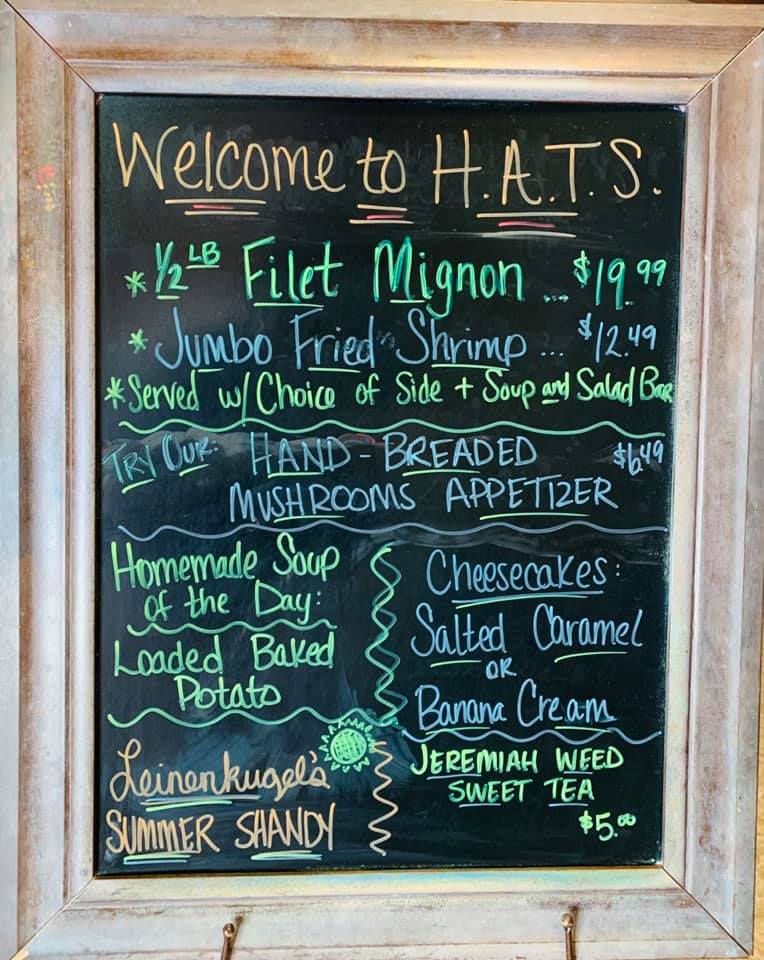 Welcome to H.A.T.S.
* 1/2 LB Filet Mignon ... $19.99
* Jumbo Fried Shrimp ... $12.49
* Served w/ Choice of Side + Soup and Salad Bar
Try Our: HAND-BREADED $6.49
MUSHROOMS APPETIZER
Homemade Soup
of the Day:
Loaded Baked
Potato
Cheesecakes:
Salted Caramel
OR
Banana Cream
Leinenkugel's
SUMMER SHANDY
JEREMIAH WEED
SWEET TEA
$5.00